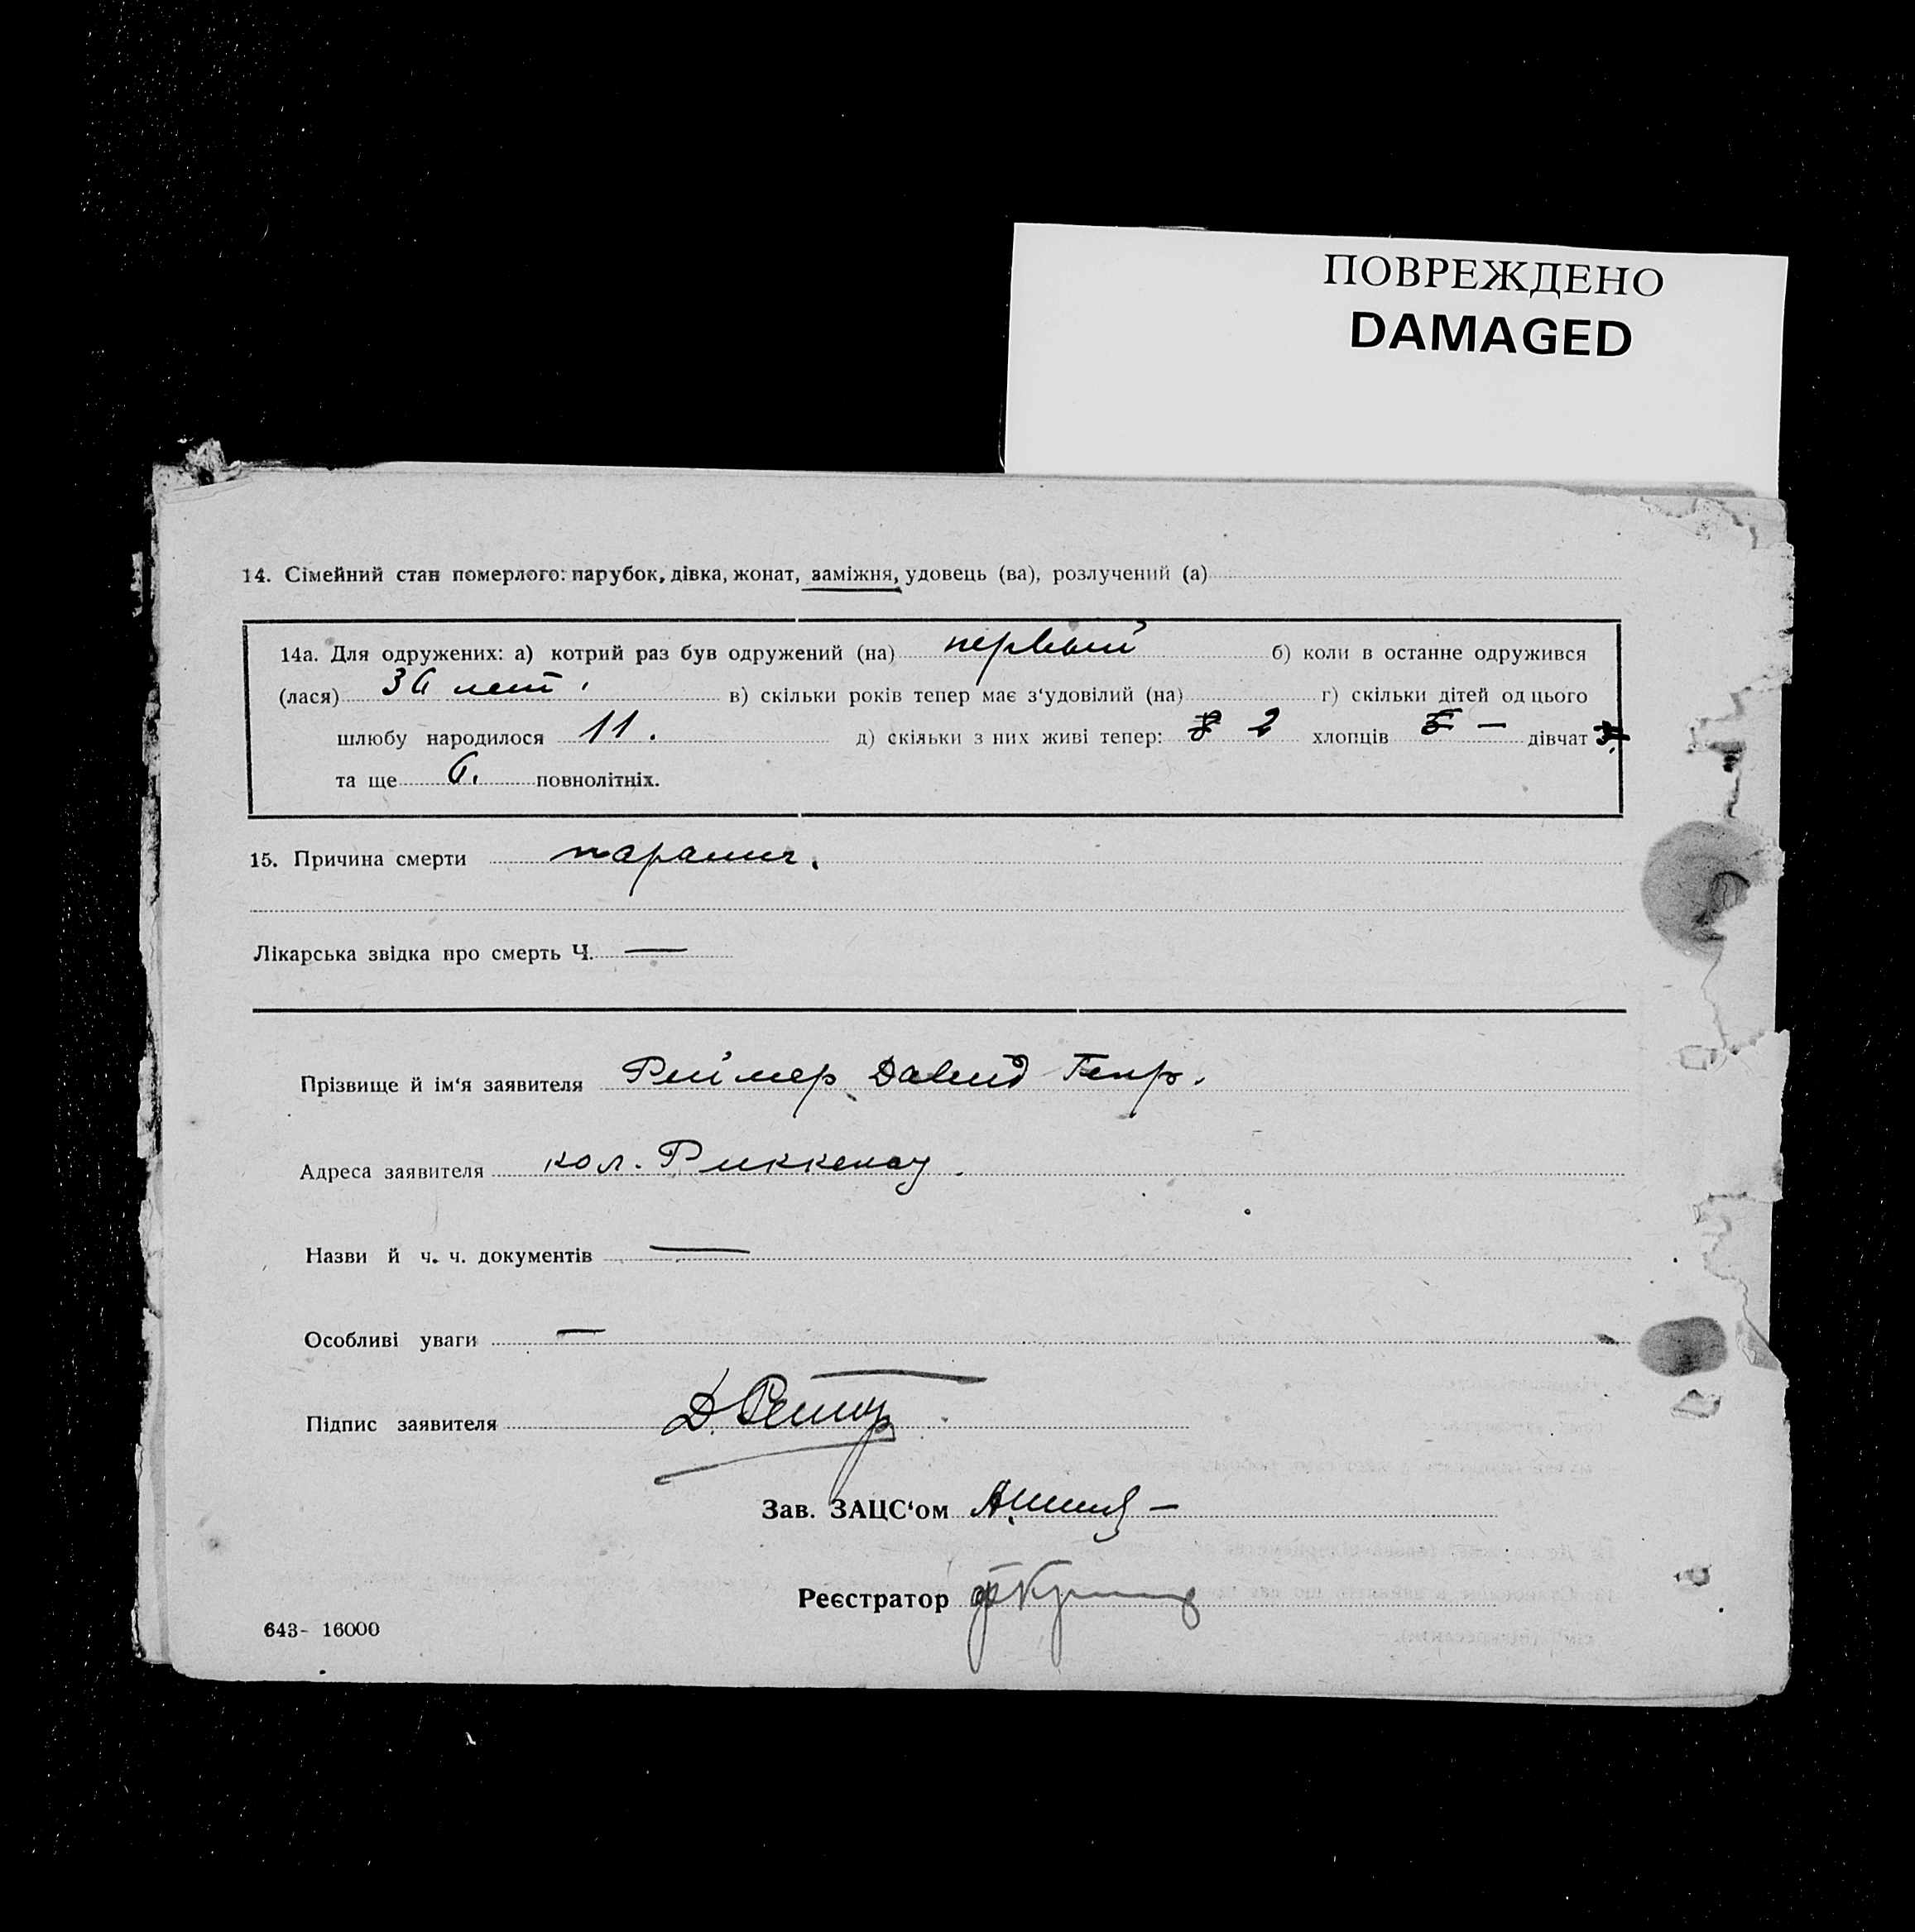 ПОВРЕЖДЕНО
DAMAGED
14. Сімейний стан померлого: парубок, дівка, жонат, заміжня, удовець (ва), розлучений (а)
14а. Для одружених: а) котрий раз був одружений (на) первый б) коли в останне одружився
(лася) 36 лет. в) скільки років тепер має з'удовілий (на) г) скільки дітей од цього
шлюбу народилося 11. д) скільки з них живі тепер: 8 2 хлопців 5 — дівчат 3.
та ще 6. повнолітніх.
15. Причина смерти паралич.
Лікарська звідка про смерть Ч. —
Прізвище й ім'я заявителя Реймер Давид Генр.
Адреса заявителя кол. Риккенау.
Назви й ч. ч. документів —
Особливі уваги —
Підпис заявителя Д. Реймер
Зав. ЗАЦС'ом
Реєстратор
643- 16000